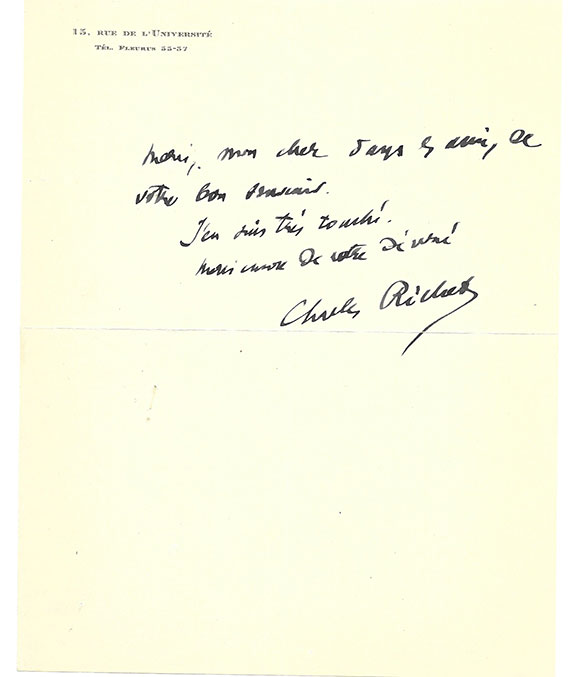 15, RUE DE L'UNIVERSITÉ
TÉL. FLEURUS 55-57
Merci, mon cher et ami, de
votre bon souvenir.
J'en suis très touché.
Merci encore De votre Dévoué
Charles Richet